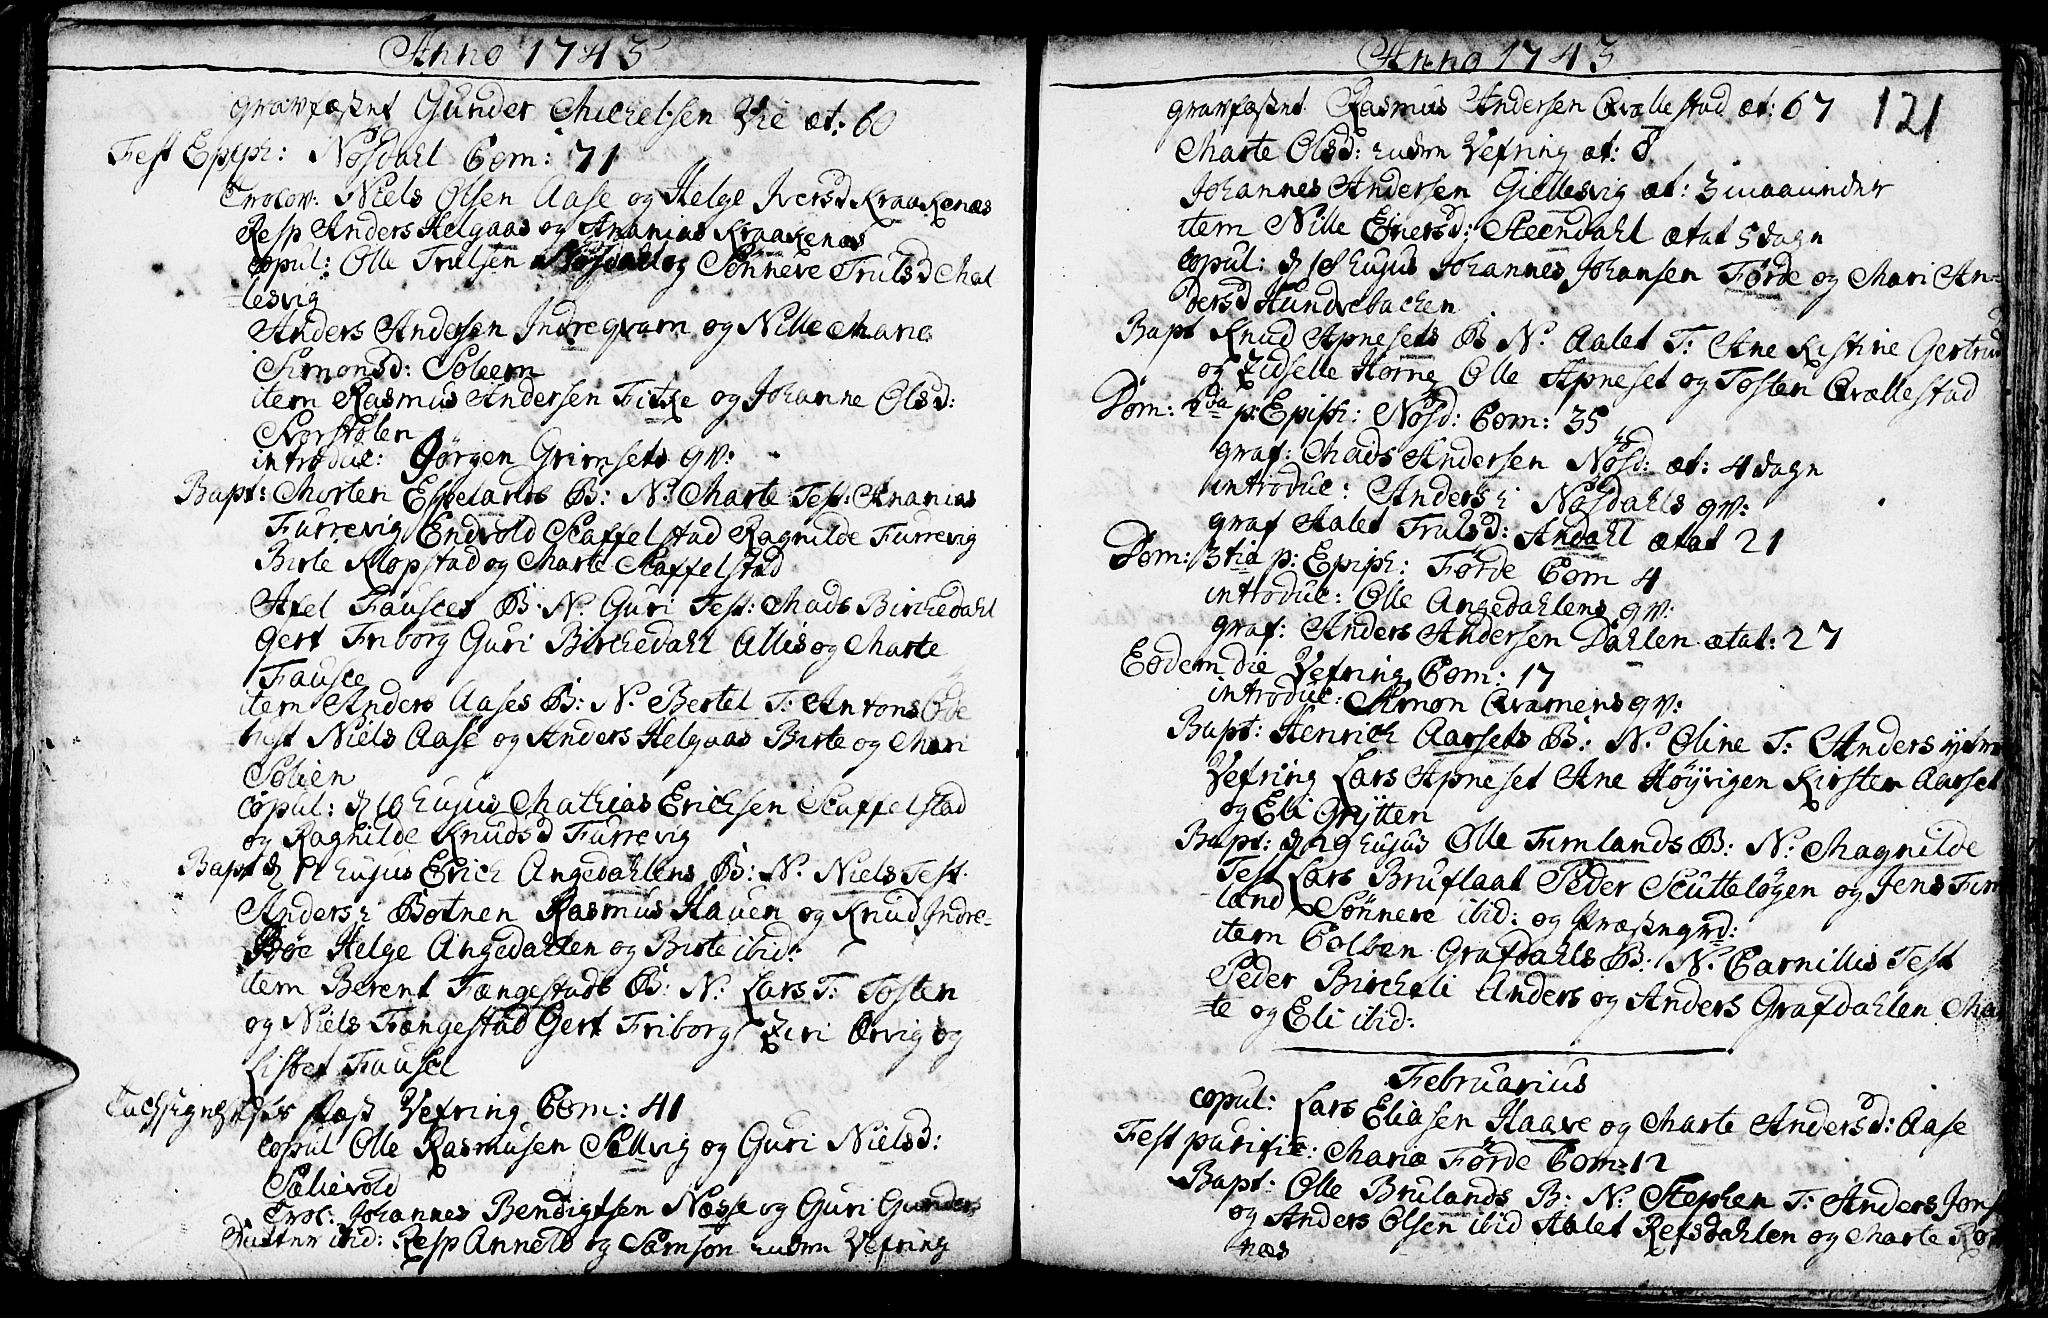 Anno 1743
gravfæstet Gunder Michelsen Vie æt: 60
Fest Epiph: Nøsdahl Com: 71
Trolov: Niels Olsen Aase og Helge Iversd Kraakenæs
Resp Anders Helgaas og Ananias Kraakenæs
copul: Olle Trulsen Nøsdahl og Sønneve Trulsd Mal
lesvig
Anders Andersen Indreqvam og Nille Marie
Simonsd: Soleem
item Rasmus Andersen Fitke og Johanne Olsd:
Korstølen
introduc: Jørgen Grimsets qv:
Bapt: Morten Espelands B: N. Marte Test: Ananias
Furrevig Endvold Staffelstad Ragnilde Furrevig
Birte Klopstad og Marte Staffelstad
Axel Fausces B: N. Guri Test: Mads Birchedahl
Gert Friborg Guri Birchedahl Allis og Marte
Fausce
item Anders Aases B: N. Bertel T: Antons
Niels Aase og Anders Helgaas Birte og Mari
Solien
copul: d 10 hujus Mathias Erichsen Staffelstad
og Ragnilde Knudsd Furrevig
Bapt d hujus Erich Angedahlens B: N. Niels Test.
Anders i Botnen Rasmus Hauen og Knud Indre-
Bøe Helge Angedahlen og Birte ibid:
item Berent Fængestads B: N. Lars T: Tosten
og Niels Fængestad Gert Friborg Ziri Ervig og
Lisbet Fausce
Vefring Com: 41
copul Olle Rasmusen Sellvig og Guri Nielsd:
Sælievold
Trol: Johannes Bendigtsen Næsse og Guri Gunders
Datter ibid: Resp Annets og Samson Vefring
Anno 1743
121
gravfæstet Rasmus Andersen Qvællestad æt: 67
Marte Olsd: Vefring æt: 8
Johannes Andersen Giellesvig æt: 3 maaneder
item Nille Eriersd: Steendahl ætat 5 dagn
copul: d 18 hujus Johannes Johansen Førde og Mari An-
dersd Hundvebachen
Bapt Knud Apnesets B N. Aalet T: Ane Kistine Gertrud
og Zidselle Horne Olle Apneset og Tosten Qvællestad
Dom: 2da p: Epiph: Nøsd: Com: 35
graf: Mads Andersen Nøsd: æt: 4 dagn
introduc: Anders i Nøsdahls qv:
graf Aalet Trulsd: Andahl ætat 21
Dom: 3tia p: Epiph: Førde Com 4
introduc: Olle Angedahlens qv:
graf: Anders Andersen Dahlen ætat: 27
Eodem die Vefring Com: 17
introduc: Simon Qvamens qv:
Bapt: Henrich Aarsets B: N. Oline T: Anders
Vefring Lars Apneset Ane Høyvigen Kirsten Aarset
og Eli Grytten
Bapt: d 29 hujus Olle Fimlands B: N. Magnilde
Test Lars Bruflaat Peder Scutteløgen og Jens Fim
land Sønneve ibid: og
item Colben Grafdahls B: N. Carnillis Test
Peder Bircheli Anders og Anders Grafdahlen Mar
te og Eli ibid:
Februarius
copul: Lars Eliasen Haave og Marte Andersd: Aase
Fest purific: Mariæ Førde Com: 12
Bapt: Olle Brulands B: N. Stephen T: Anders Jons
og Anders Olsen ibid Aalet Refsdahlen og Marte Røs
næs